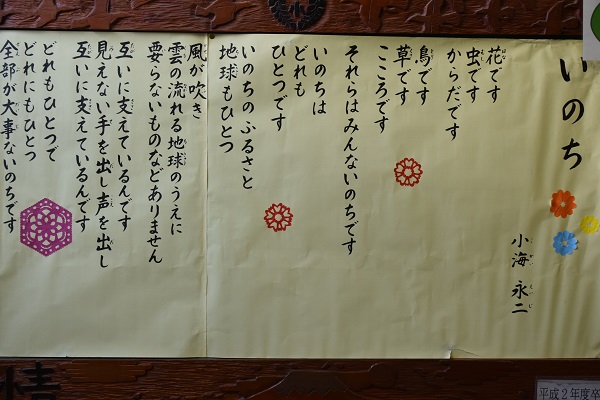 いのち
小海 永二
花です
虫です
からだです
鳥です
草です
こころです
それらはみんないのちです
いのちは
どれも
ひとつです
いのちのふるさと
地球もひとつ
風が吹き
雲の流れる地球のうえに
要らないものなどありません
互いに支えているんです
見えない手を出し声を出し
互いに支えているんです
どれもひとつで
どれにもひとつ
全部が大事ないのちです
平成2年度卒